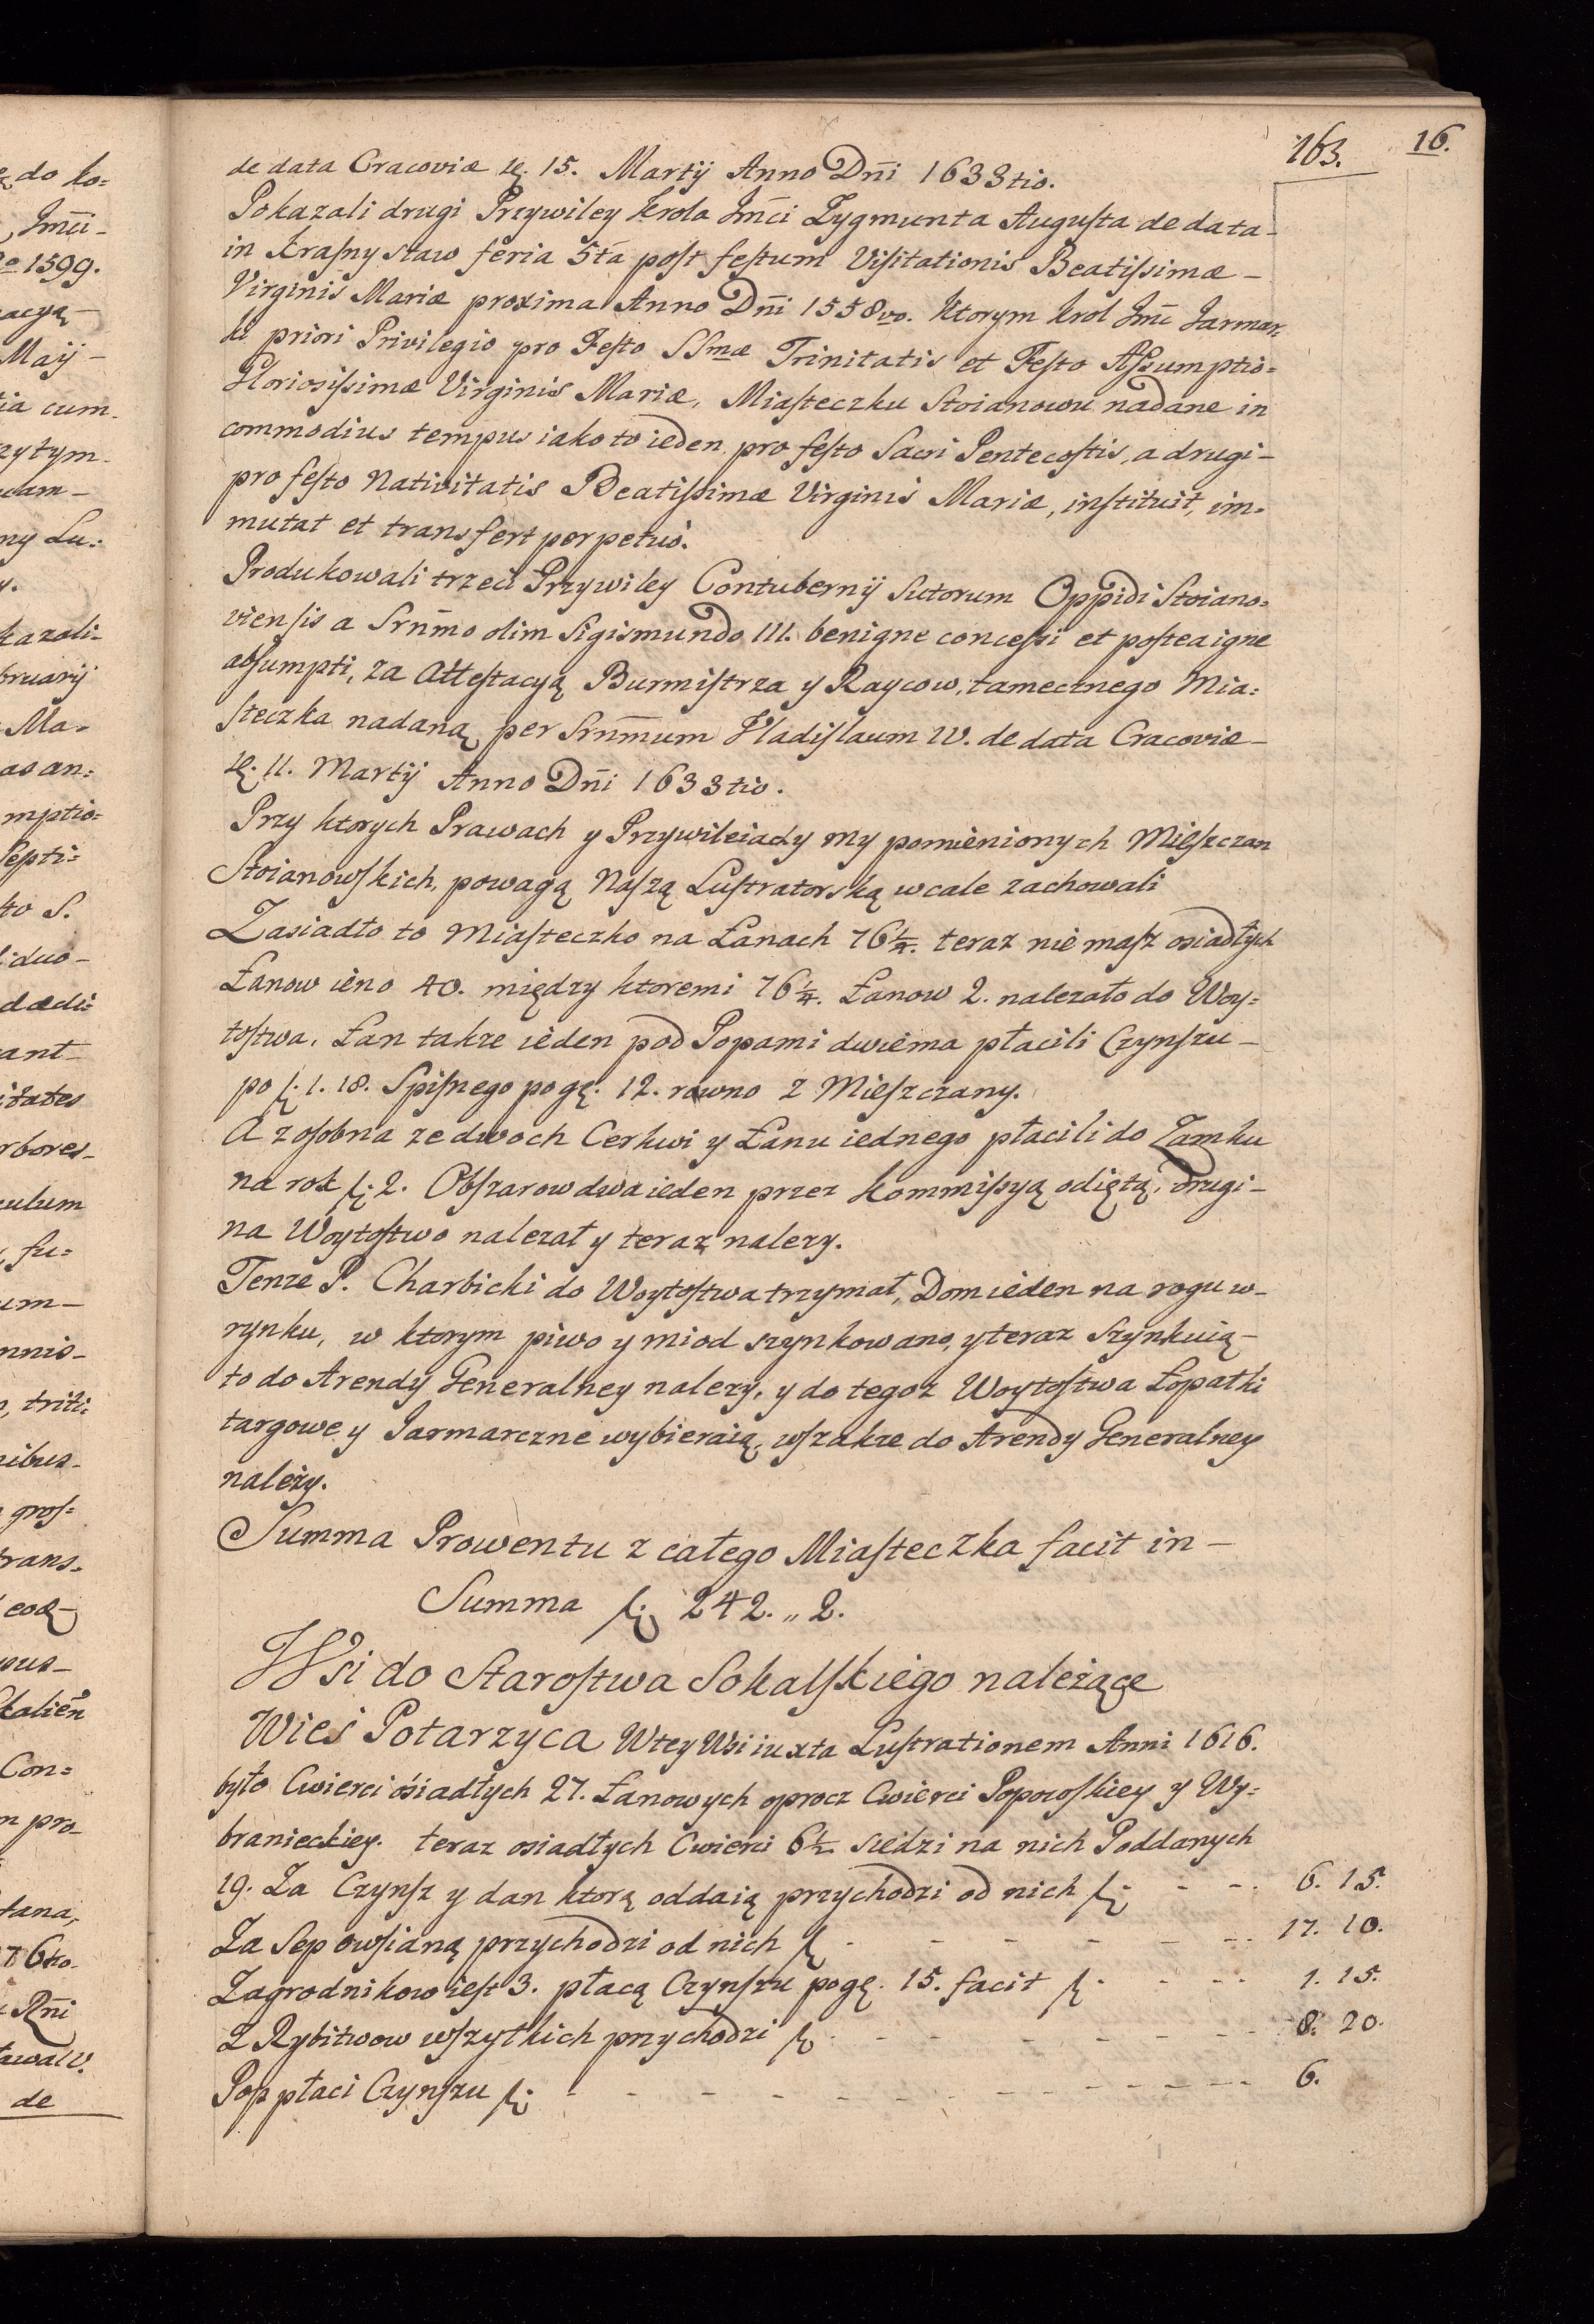 163. 16.
de data Cracoviæ 15. Martÿ Anno Dn̄i 1633tio.
Pokazali drugi Przywiley Krola Jm̄ci Zygmunta Augusta de data
in Krasnystaw feria 5tā post festum Visitationis Beatissimæ
Virginis Mariæ proxima Anno Dn̄i 1558vo. Ktorym Krol Jm̄c Jarmar=
ki priori Privilegio pro Festo SSmæ Trinitatis et Festo Assumptio=
Gloriosissimæ Virginis Mariæ, Miasteczku Stoianowu nadane in
commodius tempus iako to ieden pro festo Sacri Pentecostis, a drugi
pro festo Nativitatis Beatissimæ Virginis Mariæ, instituit, im=
mutat et transfert perpetuó.
Produkowali trzeci Przywiley Contubernÿ Sutorum Oppidi Stoiano=
viensis a Srn̄mo olim Sigismundo III. benigne concessi et postea igne
absumpti, za Attestacyą Burmistrza y Raycow, tamecznego Mia=
steczka nadaną per Srn̄mum Vladislaum IV. de data Cracoviæ
11. Martÿ Anno Dn̄i 1633tio.
Przy ktorych Prawach y Przywileiach my pomienionych Mieszczan
Stoianowskich, powagą Naszą Lustratorską wcale zachowali
Zasiadło to Miasteczko na Łanach 76¼. teraz nie masz osiadłych
Łanow ieno 40. między ktoremi 76¼. Łanow 2. nalezało do Woy=
tostwa. Łan takze ieden pod Popami dwiema płacili Czynszu
po ƒ. 1. 18. Spisnego po gę. 12. rowno z Mieszczany.
A z osobna ze dwoch Cerkwi y Łanu iednego płacili do Zamku
na rok ƒ. 2. Obszarow dwa ieden przez Kommissyą odięta, drugi
na Woytostwo nalezał y teraz nalezy.
Tenze P. Charbicki do Woytostwa trzymał, Dom ieden na rogu w
rynku, w ktorym piwo y miod szynkowano, y teraz Szynkuią
to do Arendy Generalney nalezy, y do tegoz Woytostwa Łopatki
targowe y Jarmarczne wybieraią, wszakze do Arendy Generalney
należy.
Summa Prowentu z całego Miasteczka facit in
Summa ƒ. 242. „ 2.
Wsi do Starostwa Sokalskiego należące
Wieś Potarzyca W tey Wsi iuxta Lustrationem Anni 1616.
było Cwierci ośiadłych 27. Łanowych oprocz Cwierci Popowskiey y Wy=
branieckiey. teraz osiadłych Cwierci 6½ siedzi na nich Poddanych
19. Za Czynsz y dan ktorą oddaią przychodzi od nich ƒ. - - - 6. 15.
Za Sep owsianą przychodzi od nich ƒ - - - - - - 17. 10.
Zagrodnikow iest 3. płacą Czynszu po gę. 15. facit ƒ - - - 1. 15.
Z Rybitwow wszytkich przychodzi ƒ - - - - - - 8. 20.
Pop płaci Czynszu ƒ. - - - - - - - - - - 6.